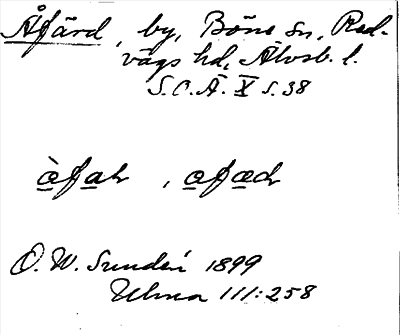 Åfärd, by, Böne sn, Red-
vägs hd, Älvsb. l.
S.O.Ä. X s. 38
àfah, afæd
O. W. Sundén 1899
Ulma 111:258